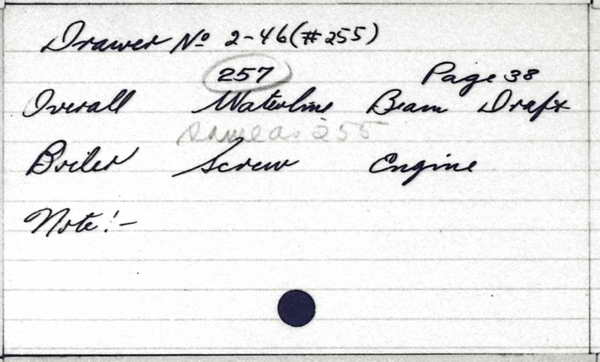 Drawer No 2-46 (#255)
257 Page 38
Overall Waterline Beam Draft
Same as 255
Boiler Screw Engine
Note:-